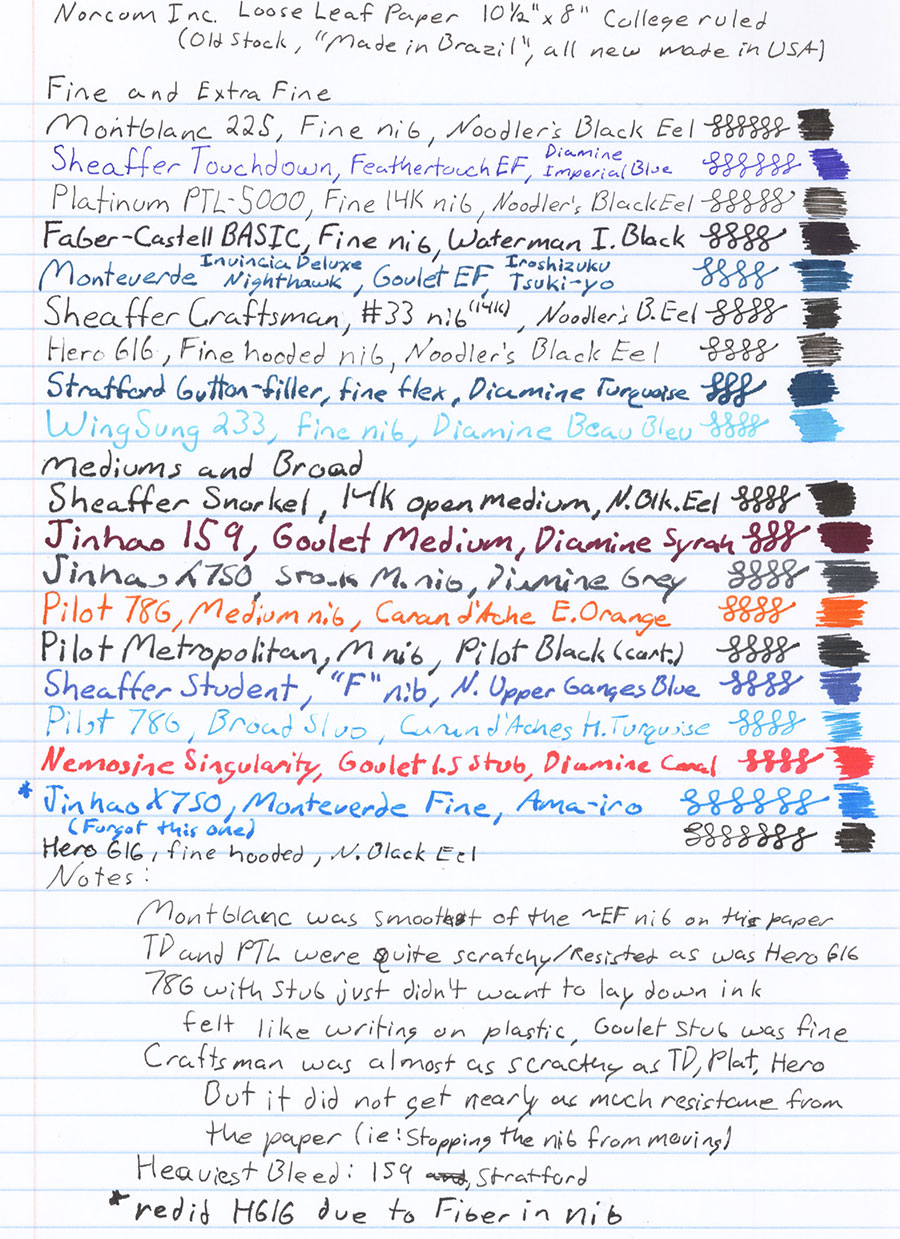 Norcom Inc. Loose Leaf Paper 10½"x8" College ruled
(Old Stock, "Made in Brazil", all new made in USA)
Fine and Extra Fine
Montblanc 225, Fine nib, Noodler's Black Eel
Sheaffer Touchdown, Feathertouch EF, Diamine Imperial Blue
Platinum PTL-5000, Fine 14K nib, Noodler's Black Eel
Faber-Castell BASIC, Fine nib, Waterman I. Black
Monteverde Invincia Deluxe Nighthawk, Goulet EF, Iroshizuku Tsuki-yo
Sheaffer Craftsman, #33 nib (14K), Noodler's B. Eel
Hero 616, Fine hooded nib, Noodler's Black Eel
Stratford button-filler, fine flex, Diamine Turquoise
WingSung 233, fine nib, Diamine Beau Bleu
Mediums and Broad
Sheaffer Snorkel, 14K open medium, N. Blk. Eel
Jinhao 159, Goulet Medium, Diamine Syrah
Jinhao X750, Stock M. nib, Diamine Grey
Pilot 78G, Medium nib, Caran d'Ache E. Orange
Pilot Metropolitan, M nib, Pilot Black (cart.)
Sheaffer Student, "F" nib, N. Upper Ganges Blue
Pilot 78G, Broad Caran d'Aches H. Turquoise
Nemosine Singularity, Goulet 1.5 Stub, Diamine Coral
* Jinhao X750, Monteverde Fine, Ama-iro
(Forgot this one)
Hero 616, fine hooded, N. Black Eel
Notes:
Montblanc was smoothest of the ~EF nib on this paper
TD and PTL were Quite scratchy/Resisted as was Hero 616
78G with Stub just didn't want to lay down ink
felt like writing on plastic, Goulet Stub was fine
Craftsman was almost as scracthy as TD, Plat, Hero
But it did not get nearly as much resistance from
the paper (ie: Stopping the nib from moving)
Heaviest Bleed: 159, Stratford
* redid H616 due to Fiber in nib